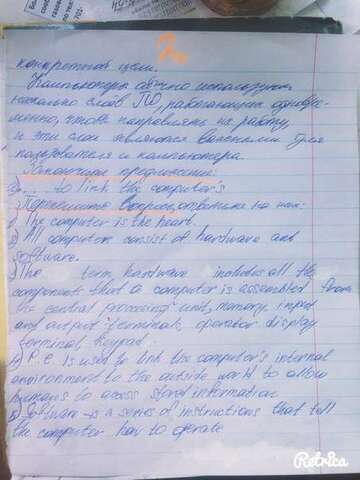 2
конкретной цели.
Компьютеры обычно используют
несколько слоёв ПО, работающих одновре-
менно, чтобы направлять их работу,
и эти слои являются важными для
пользователя и компьютера.
Закончите предложение:
a) ... to link the computer's
Переведите вопросы, ответьте на них:
1) The computer is the heart.
2) All computers consist of hardware and
software.
3) The term, hardware includes all the
component that a computer is assembled from
the central processing unit, memory, input
and output terminals, operator display
terminal, keypad.
4) P.C. is used to link the computer's internal
environment to the outside world to allow
humans to access stored information
5) Software is a series of instructions that tell
the computer how to operate
Retrica